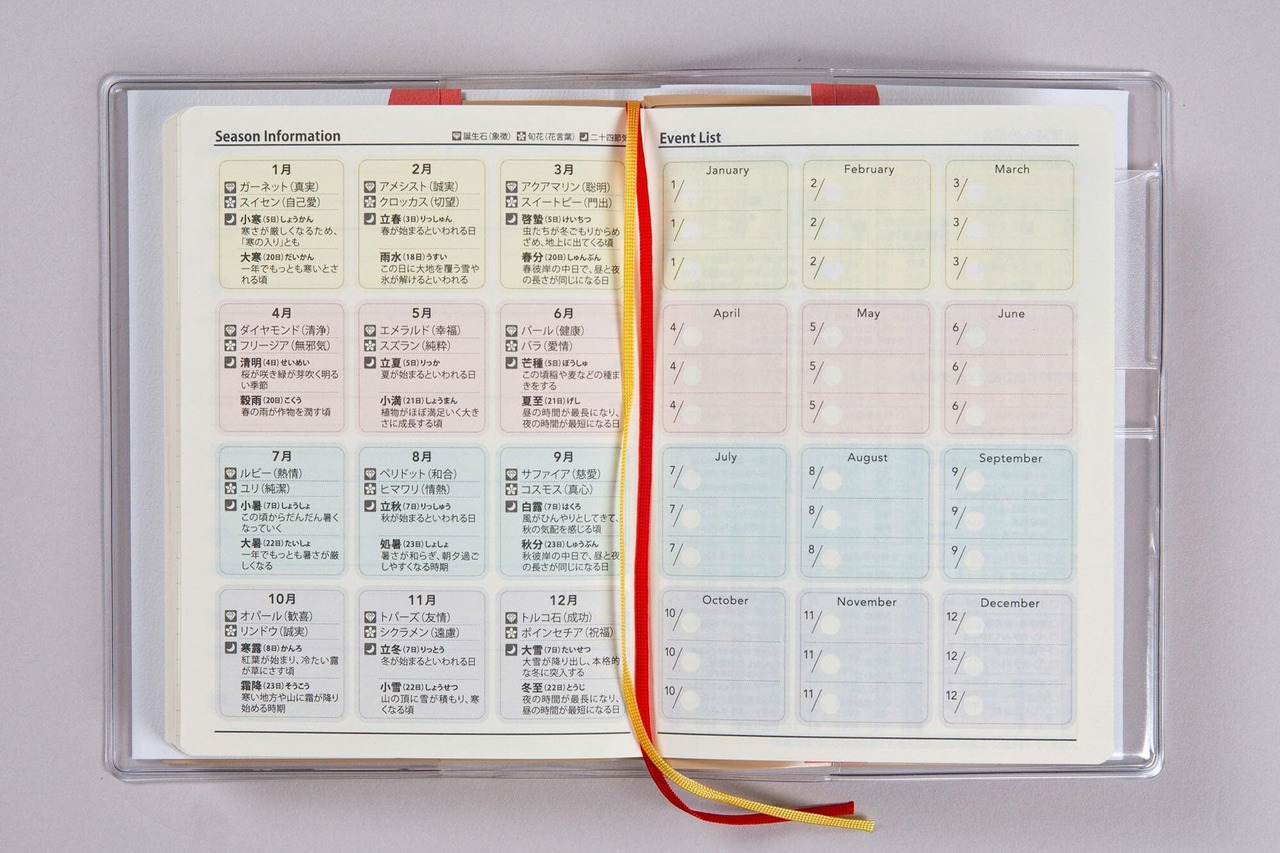 Season Information
誕生石(象徴) 旬花(花言葉) 二十四節気
1月
ガーネット(真実)
スイセン(自己愛)
小寒(5日)しょうかん
寒さが厳しくなるため、
「寒の入り」とも
大寒(20日)だいかん
一年でもっとも寒いとさ
れる頃
2月
アメシスト(誠実)
クロッカス(切望)
立春(3日)りっしゅん
春が始まるといわれる日
雨水(18日)うすい
この日に大地を覆う雪や
氷が解けるといわれる
3月
アクアマリン(聡明)
スイートピー(門出)
啓蟄(5日)けいちつ
虫たちが冬ごもりからめ
ざめ、地上に出てくる頃
春分(20日)しゅんぶん
春彼岸の中日で、昼と夜
の長さが同じになる日
4月
ダイヤモンド(清浄)
フリージア(無邪気)
清明(4日)せいめい
桜が咲き緑が芽吹く明る
い季節
穀雨(20日)こくう
春の雨が作物を潤す頃
5月
エメラルド(幸福)
スズラン(純粋)
立夏(5日)りっか
夏が始まるといわれる日
小満(21日)しょうまん
植物がほぼ満足いく大き
さに成長する頃
6月
パール(健康)
バラ(愛情)
芒種(5日)ぼうしゅ
この頃稲や麦などの種ま
きをする
夏至(21日)げし
昼の時間が最長になり、
夜の時間が最短になる日
7月
ルビー(熱情)
ユリ(純潔)
小暑(7日)しょうしょ
この頃からだんだん暑く
なっていく
大暑(22日)たいしょ
一年でもっとも暑さが厳
しくなる
8月
ペリドット(和合)
ヒマワリ(情熱)
立秋(7日)りっしゅう
秋が始まるといわれる日
処暑(23日)しょしょ
暑さが和らぎ、朝夕過ご
しやすくなる時期
9月
サファイア(慈愛)
コスモス(真心)
白露(7日)はくろ
風がひんやりとしてきて、
秋の気配を感じる頃
秋分(23日)しゅうぶん
秋彼岸の中日で、昼と夜
の長さが同じになる日
10月
オパール(歓喜)
リンドウ(誠実)
寒露(8日)かんろ
紅葉が始まり、冷たい露
が草にさす頃
霜降(23日)そうこう
寒い地方や山に霜が降り
始める時期
11月
トパーズ(友情)
シクラメン(遠慮)
立冬(7日)りっとう
冬が始まるといわれる日
小雪(22日)しょうせつ
山の頂に雪が積もり、寒
くなる頃
12月
トルコ石(成功)
ポインセチア(祝福)
大雪(7日)たいせつ
大雪が降り出し、本格的
な冬に突入する
冬至(22日)とうじ
夜の時間が最長になり、
昼の時間が最短になる日
Event List
January
1/
1/
1/
February
2/
2/
2/
March
3/
3/
3/
April
4/
4/
4/
May
5/
5/
5/
June
6/
6/
6/
July
7/
7/
7/
August
8/
8/
8/
September
9/
9/
9/
October
10/
10/
10/
November
11/
11/
11/
December
12/
12/
12/